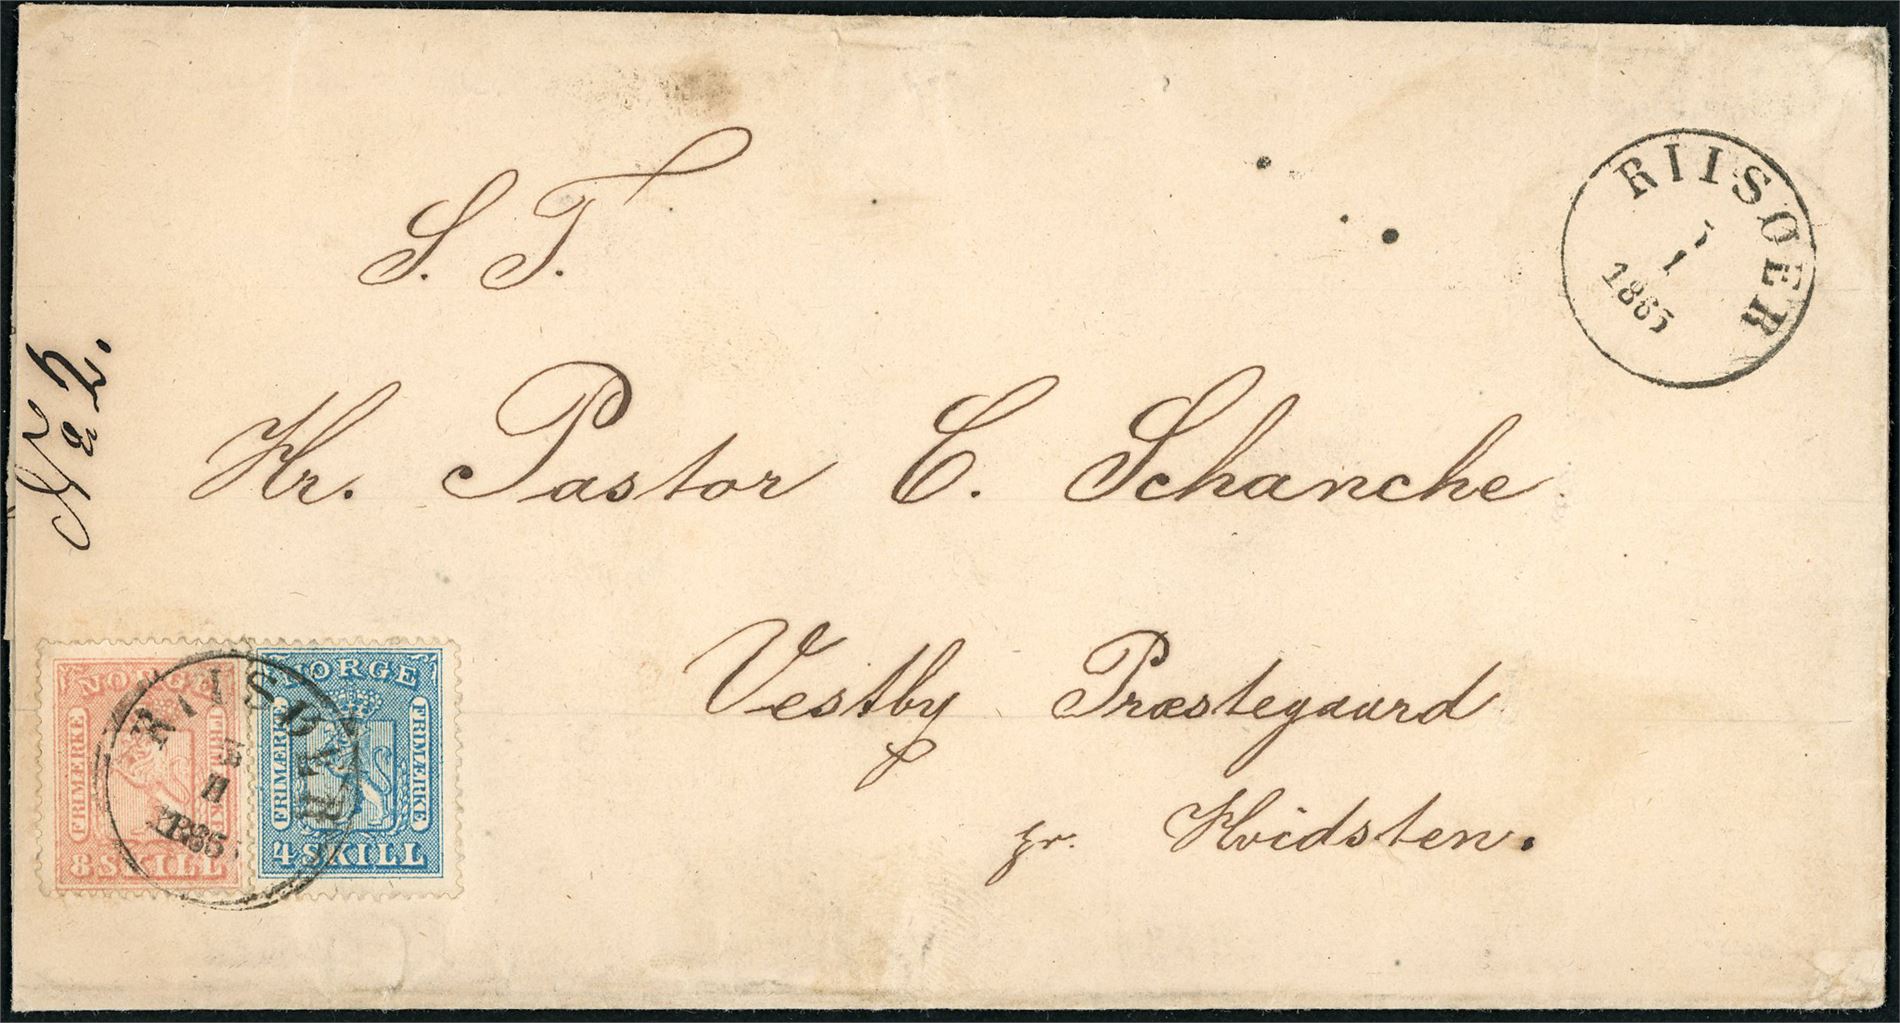 S. T.
Hr. Pastor C. Schanche
Vestby Præstegaard
pr. Hvidsten.
№ 2.
RIISØER
5
1
1865
NORGE
FRIMÆRKE
FRIMÆRKE
8 SKILL
NORGE
FRIMÆRKE
FRIMÆRKE
4 SKILL
RIISØER
1865